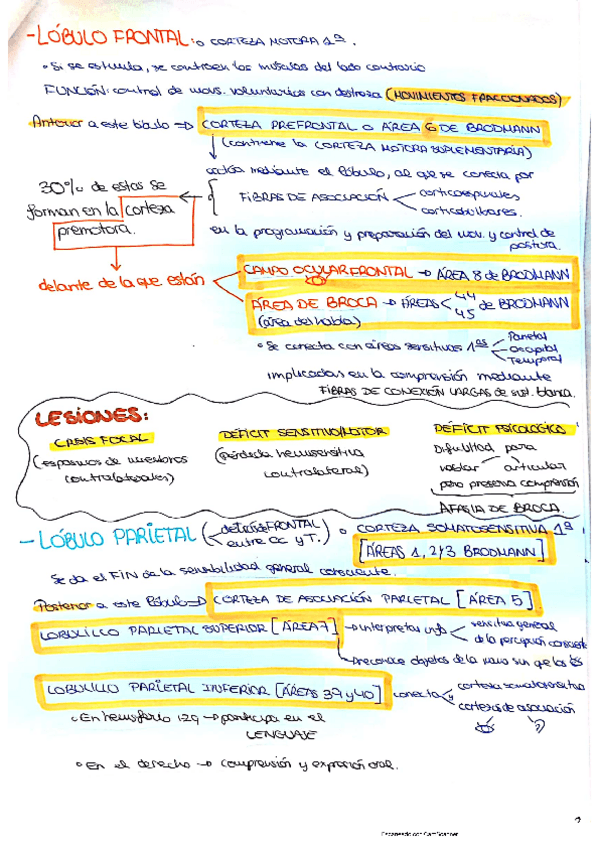 - LÓBULO FRONTAL: o CORTEZA MOTORA 1ª.
• Si se estimula, se contraen los músculos del lado contrario
FUNCIÓN: control de movs. voluntarios con destreza (MOVIMIENTOS FRACCIONADOS)
Anterior a este lóbulo => CORTEZA PREFRONTAL O ÁREA 6 DE BRODMANN
(contiene la CORTEZA MOTORA SUPLEMENTARIA)
actúa mediante el lóbulo, al que se conecta por
FIBRAS DE ASOCIACIÓN
corticoespinales
corticobulbares.
30% de estas se
forman en la corteza
premotora.
en la programación y preparación del mov. y control de
postura.
delante de la que están
CAMPO OCULAR FRONTAL → ÁREA 8 de BRODMANN
ÁREA DE BROCA → ÁREAS 44 45 de BRODMANN
(área del habla)
• Se conecta con áreas sensitivas 1as
Parietal
Occipital
Temporal
implicadas en la comprensión mediante
FIBRAS DE CONEXIÓN LARGAS de sust. blanca.
LESIONES:
CRISIS FOCAL
(espasmos de miembros
contralaterales)
DÉFICIT SENSITIVO/MOTOR
(pérdida hemisensitiva
contralateral)
DÉFICIT PSICOLÓGICO
Dificultad para
articular
pero preserva comprensión
AFASIA DE BROCA.
- LÓBULO PARIETAL (detrás de FRONTAL
entre Oc y T.) o CORTEZA SOMATOSENSITIVA 1ª
[ÁREAS 1, 2 y 3 BRODMANN]
Se da el FIN de la sensibilidad general consciente.
Posterior a este lóbulo => CORTEZA DE ASOCIACIÓN PARIETAL [ÁREA 5]
LOBULILLO PARIETAL SUPERIOR [ÁREA 7] → interpretar info
sensitiva general
de la percepción consciente
reconoce objetos de la mano sin que los
LOBULILLO PARIETAL INFERIOR [ÁREAS 39 y 40] conecta
corteza somatosensitiva
y cortezas de asociación
• En hemisferio izq → participa en el
LENGUAJE
• En el derecho → comprensión y expresión oral.
Escaneado con CamScanner